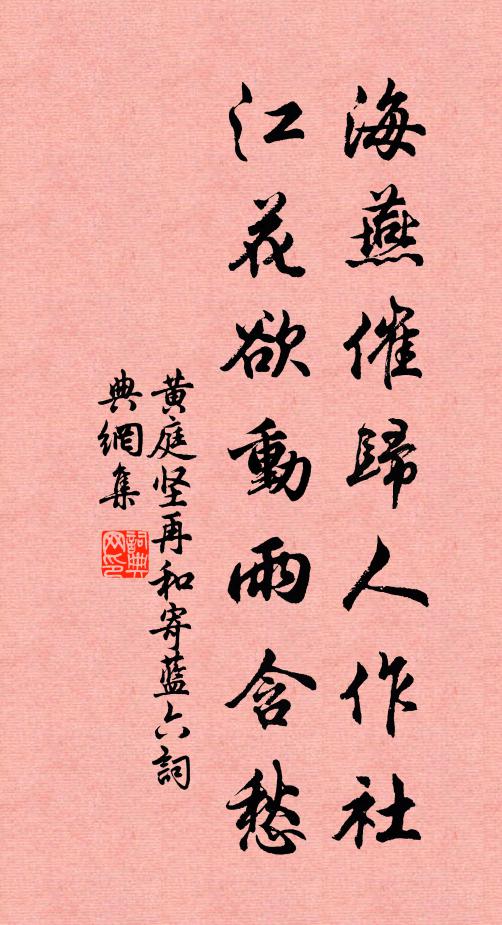 海燕催歸人作社
江花欲動雨含愁
黄庭坚再和寄藍六詞
典網集
詞典
网印